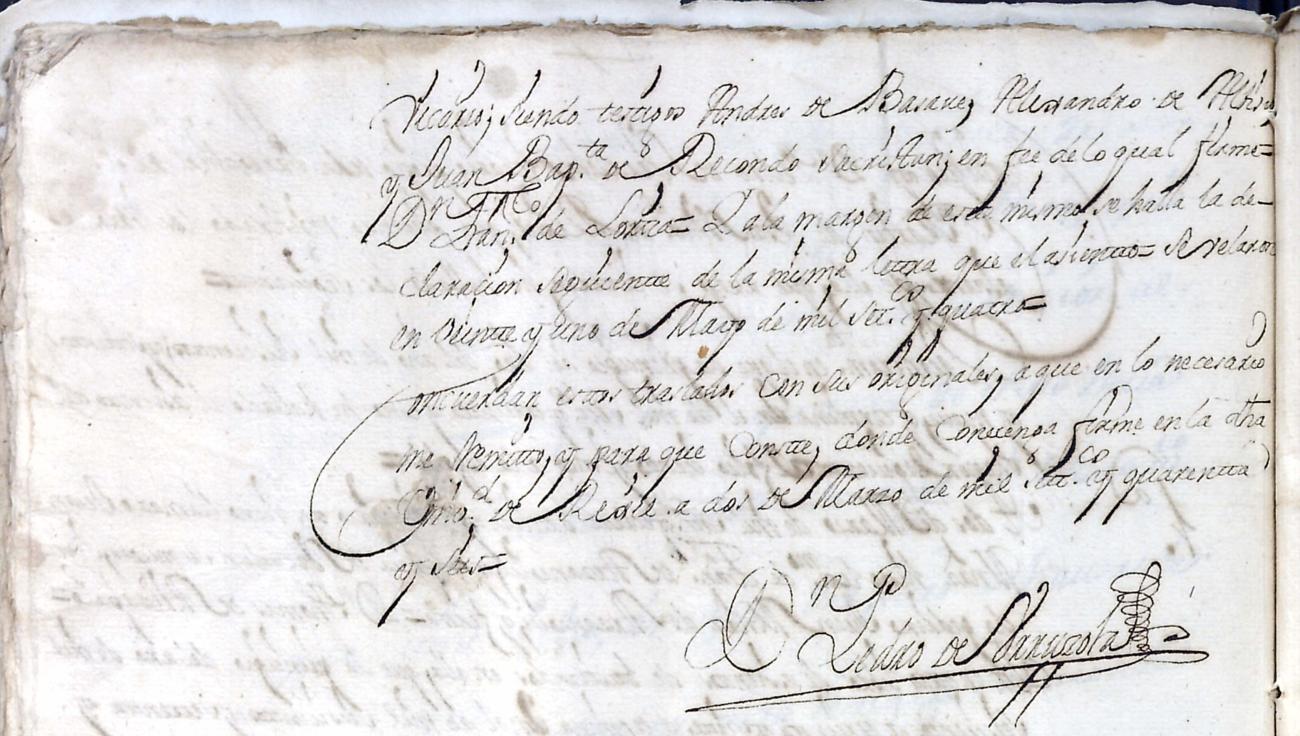 Vicario, siendo testigos Andres de Basave, Alexandro de
y Juan Bap.ta de Recondo sacristan; en fee de lo qual firme=
D.n Fran.co de Loriea= Y a la margen de este mismo se halla la de-
claracion seguiente de la misma letra que el asiento= Se velaron
en viente y uno de Mayo de mil set.cos y quatro=
Concuerdan estos traslados con sus originales, a que en lo necesario
me remitto, y para que conste, donde convenga firme en la dha
Vniv.d de Regil a dos de Marzo de mil set.cos y quarentta
y seis=
D.n Pedro de